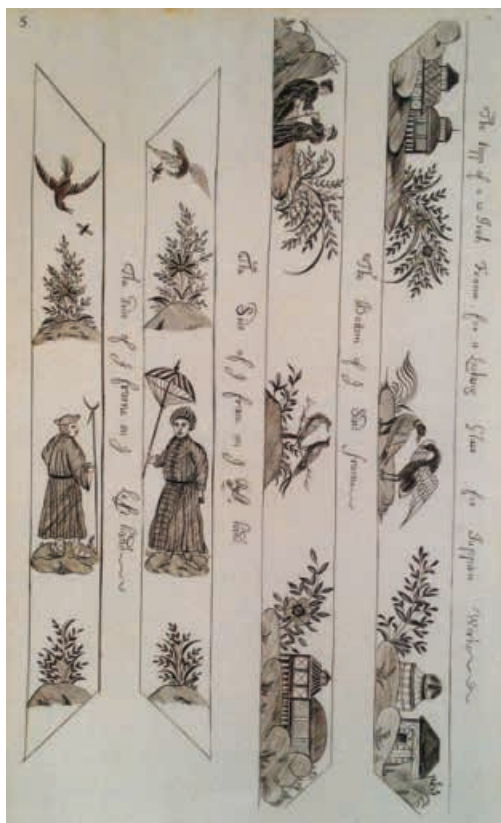 5
The topp of a 12 Inch frame for a Looking Glass for Jappan Work
The Bottom of y Said frame
The Side of y frame on y hand
The Side of y frame on y left hand